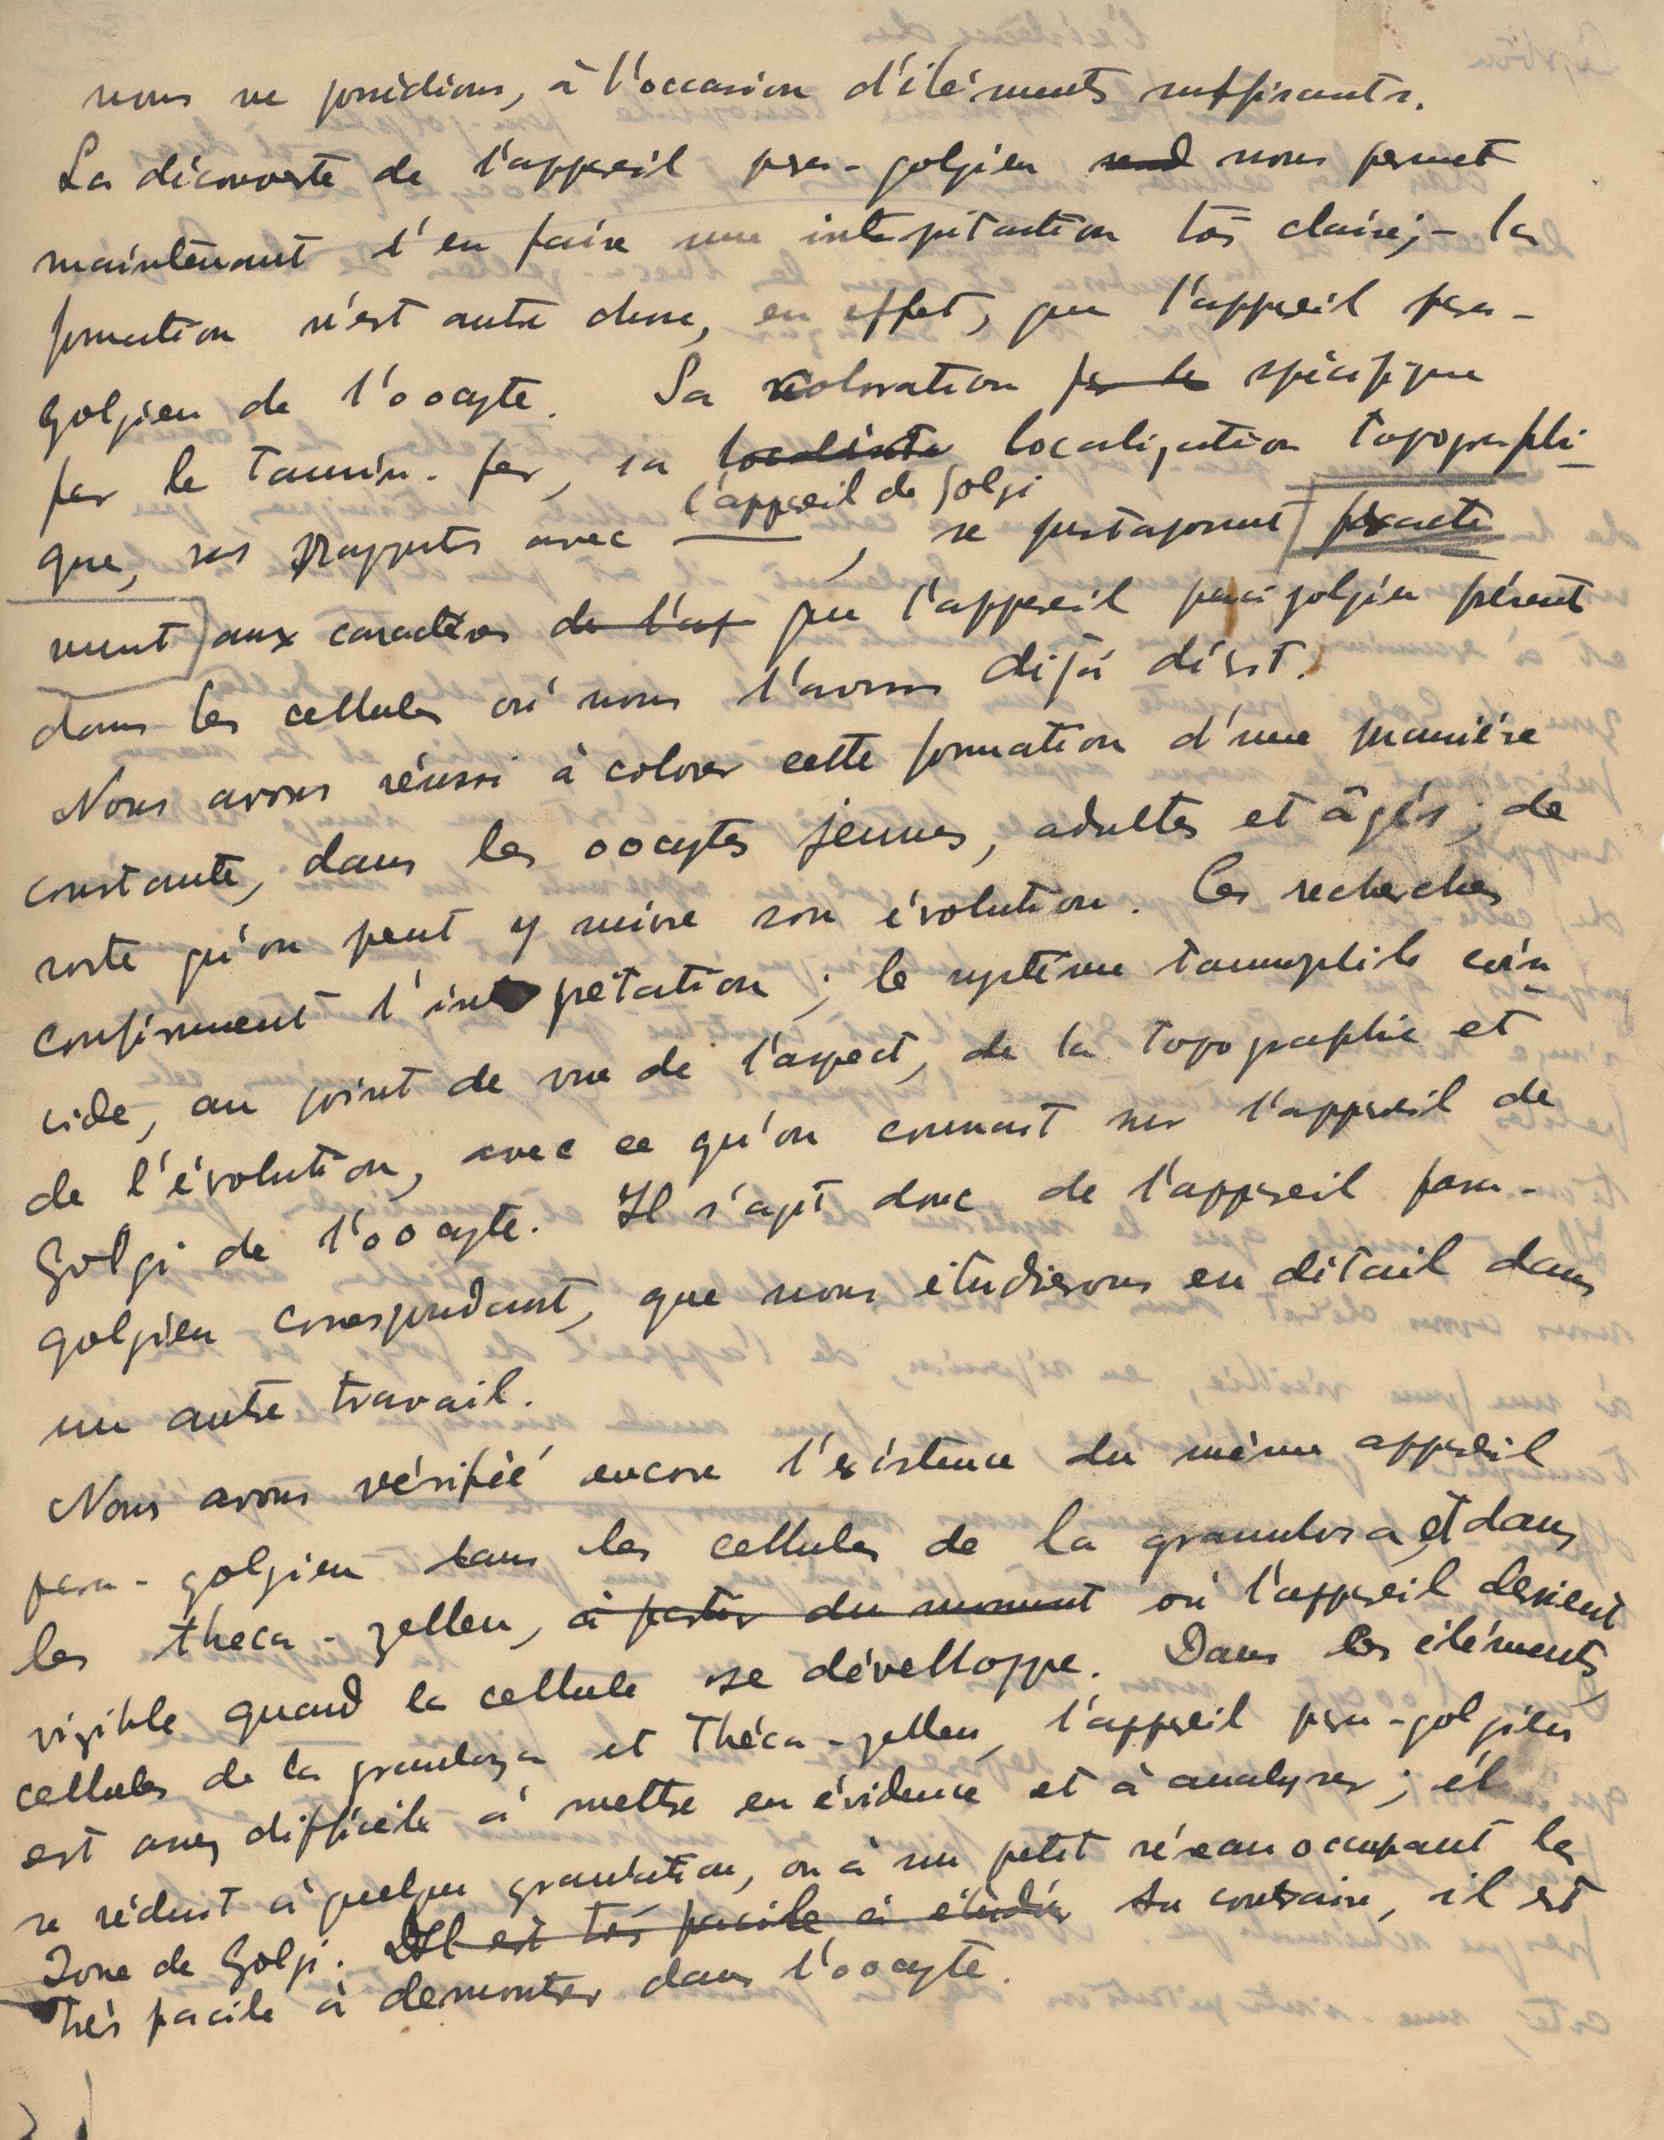 nous ne possèdions, à l'occasion d'éléments suffisants.
La découverte de l'appareil para-golgien nous permet
maintenant d'en faire une interprétation très claire; - la
formation n'est autre chose, en effet, que l'appareil para-
golgien de l'oocyte. Sa coloration spécifique
par le tannin-fer, sa localisation topographi-
que, ses rapports avec l'appareil de Golgi, se juxtaposent exacte
ment aux caractères que l'appareil para golgien présent
dans les cellules où nous l'avons déjà décrit.
Nous avons réussi à colorer cette formation d'une manière
constante, dans les oocytes jeunes, adultes et âgés; de
sorte qu'on peut y suivre son évolution. Ces recherches
confirment l'interprétation; le système tannophile coïn
cide, au point de vue de l'aspect, de la topographie et
de l'évolution, avec ce qu'on connait sur l'appareil de
Golgi de l'oocyte. Il s'agit donc de l'appareil para-
golgien correspondant, que nous étudierons en détail dans
un autre travail.
Nous avons vérifié encore l'existence du même appareil
para-golgien dans les cellules de la granulosa et dans
les theca-zellen, à partir du moment où l'appareil devient
vizible quand la cellule se dévelloppe. Dans les éléments,
cellules de la granuloza et Théca-zellen, l'appareil para-golgien
est assez difficile à mettre en évidence et à analyser; il
se réduit à quelque granulation, ou à un petit réseau occupant la
Zone de Golgi. Il est très facile à étudier Au contraire, il est
très facile à demontrer dans l'oocyte.